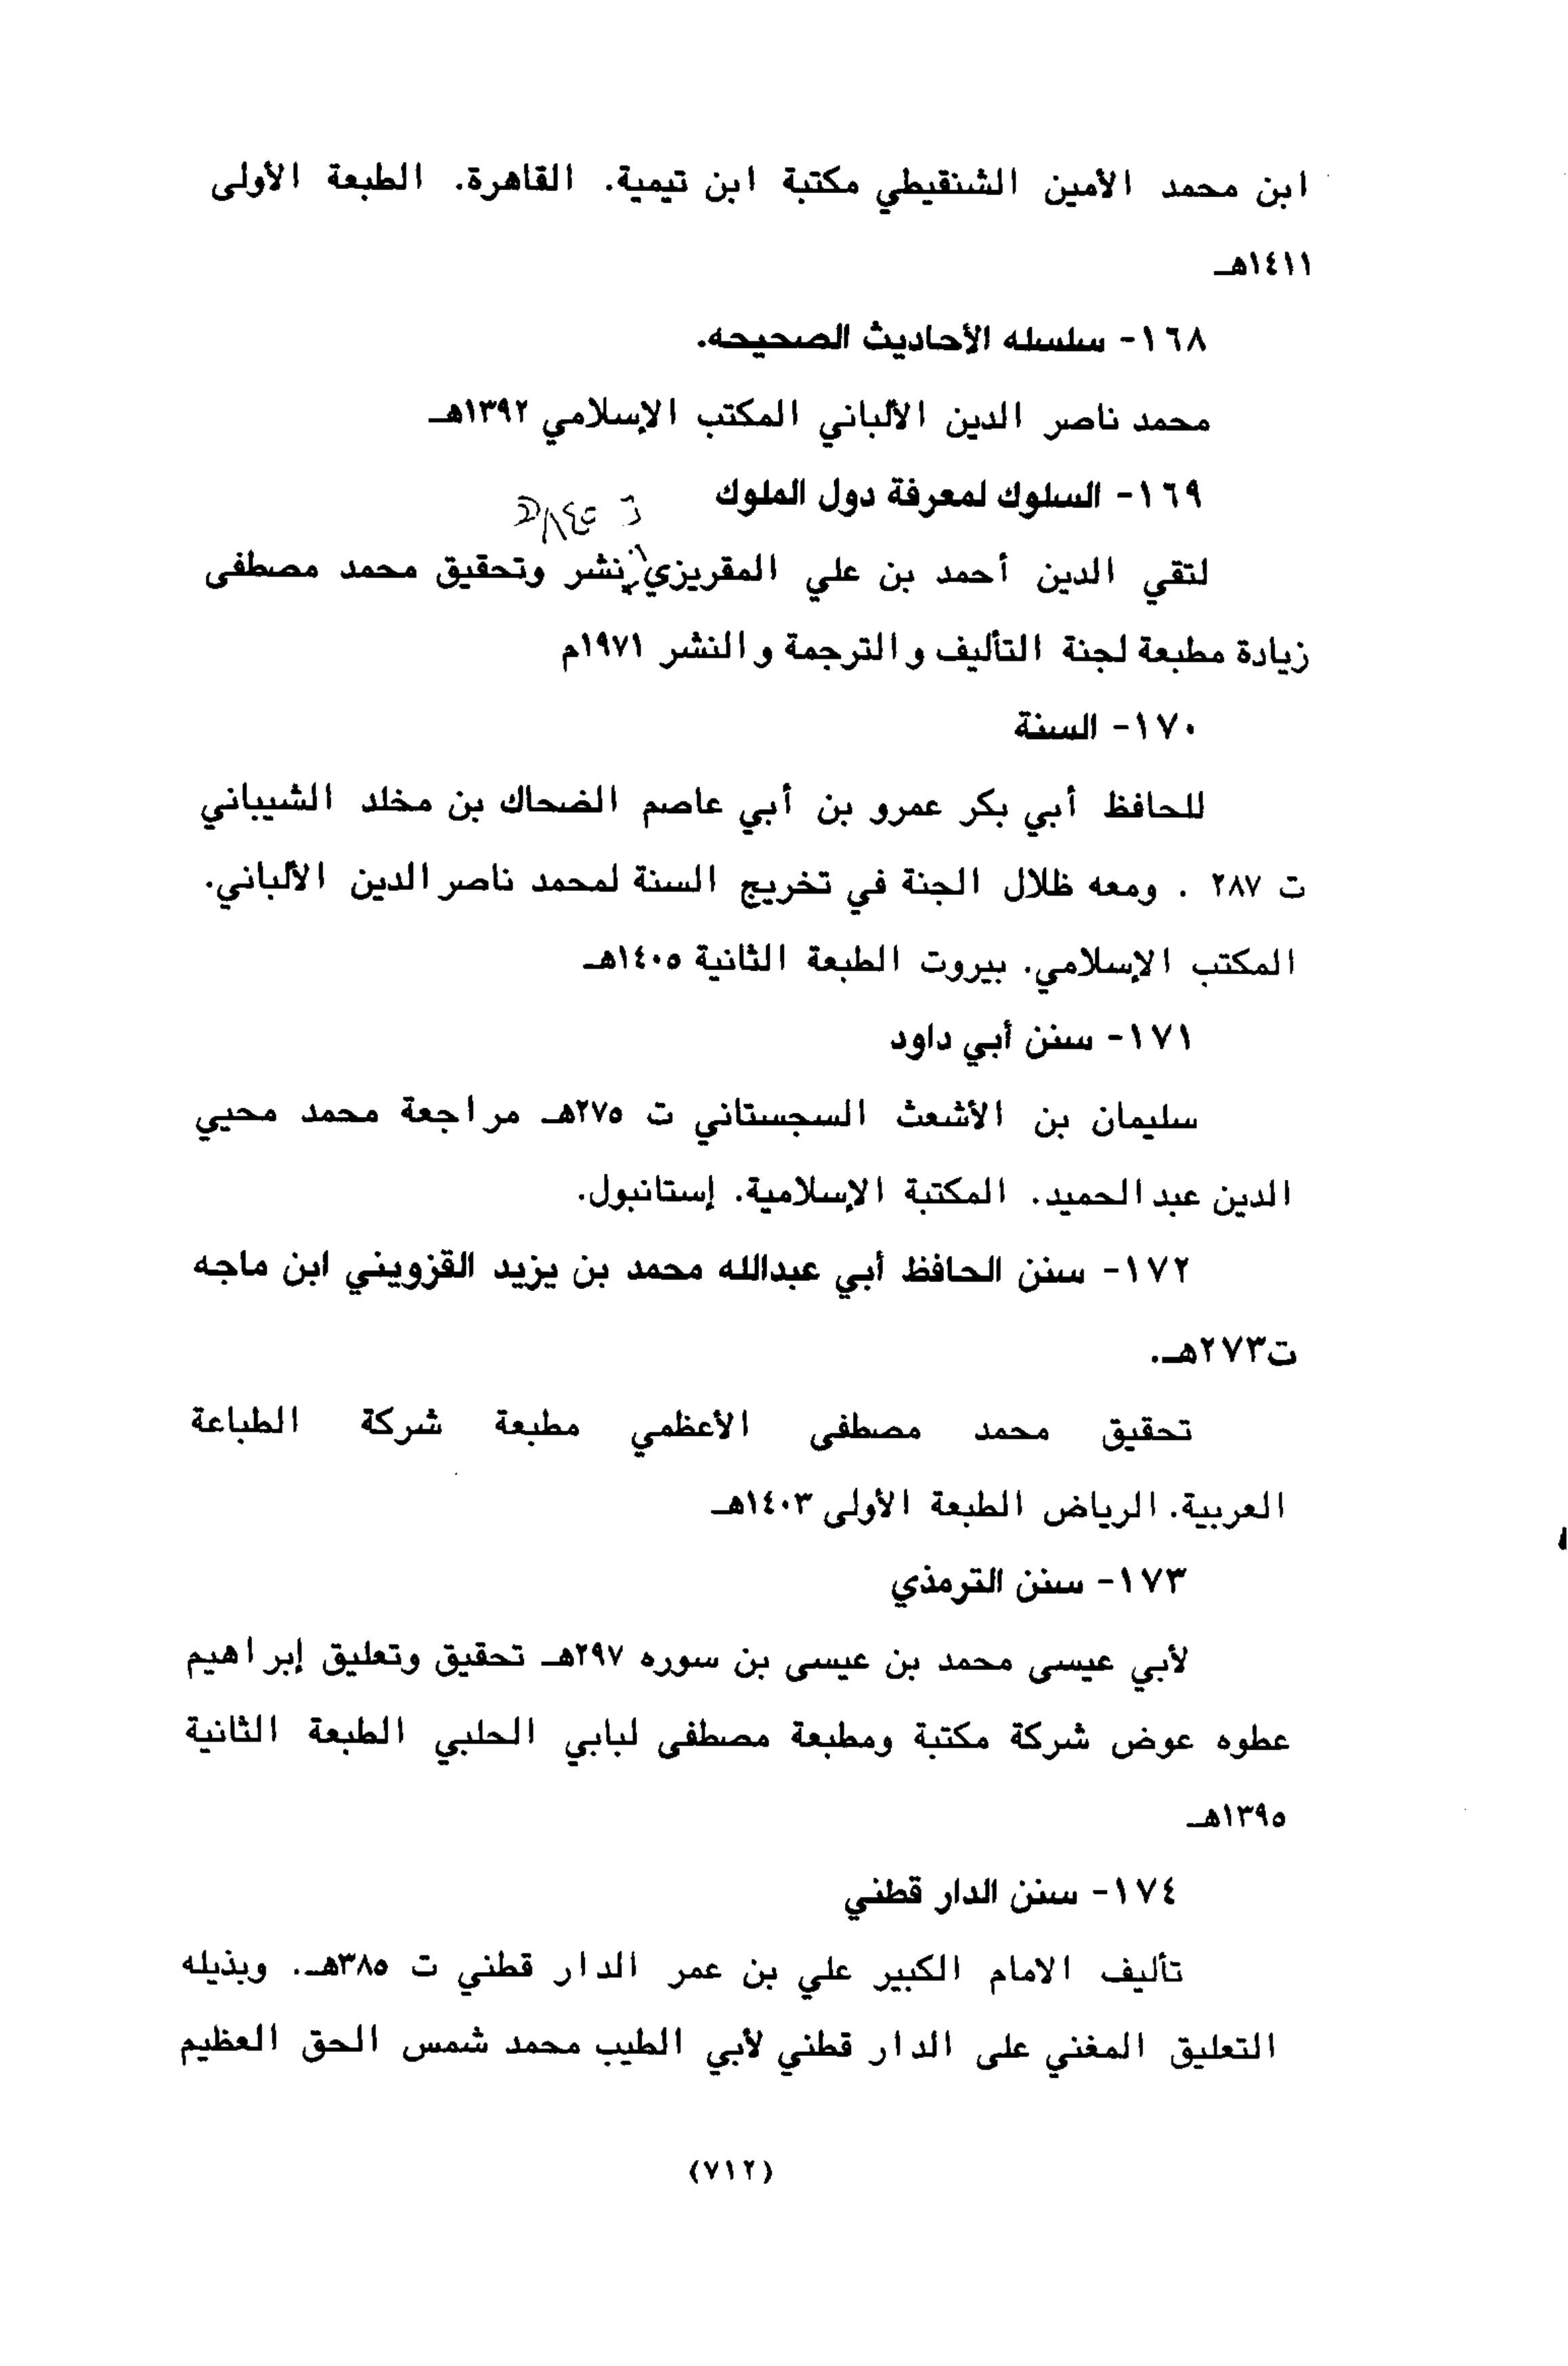 ابن محمد الأمين الشنقيطي مكتبة ابن تيمية. القاهرة. الطبعة الأولى
١٤١١هـ
١٦٨- سلسله الأحاديث الصحيحه.
محمد ناصر الدين الألباني المكتب الإسلامي ١٣٩٢هـ
١٦٩- السلوك لمعرفة دول الملوك
لتقي الدين أحمد بن علي المقريزي نشر وتحقيق محمد مصطفى
زيادة مطبعة لجنة التأليف والترجمة والنشر ١٩٧١م
١٧٠- السنة
للحافظ أبي بكر عمرو بن أبي عاصم الضحاك بن مخلد الشيباني
ت ٢٨٧ . ومعه ظلال الجنة في تخريج السنة لمحمد ناصر الدين الألباني.
المكتب الإسلامي. بيروت الطبعة الثانية ١٤٠٥هـ
١٧١- سنن أبي داود
سليمان بن الأشعث السجستاني ت ٢٧٥هـ مراجعة محمد محيي
الدين عبد الحميد. المكتبة الإسلامية. إستانبول.
١٧٢- سنن الحافظ أبي عبدالله محمد بن يزيد القزويني ابن ماجه
ت٢٧٣هـ.
تحقيق محمد مصطفى الأعظمي مطبعة شركة الطباعة
العربية. الرياض الطبعة الأولى ١٤٠٣هـ
١٧٣- سنن الترمذي
لأبي عيسى محمد بن عيسى بن سوره ٢٩٧هـ تحقيق وتعليق إبراهيم
عطوه عوض شركة مكتبة ومطبعة مصطفى لبابي الحلبي الطبعة الثانية
١٣٩٥هـ
١٧٤- سنن الدار قطني
تأليف الامام الكبير علي بن عمر الدار قطني ت ٣٨٥هـ. وبذيله
التعليق المغني على الدار قطني لأبي الطيب محمد شمس الحق العظيم
(٧١٢)